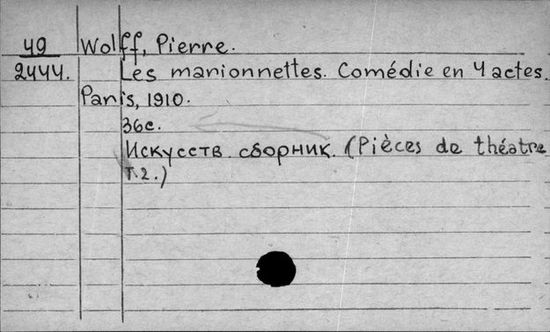 49 Wolff, Pierre.
2444. Les marionnettes. Comédie en 4 actes.
Paris, 1910.
36с.
Искусств. сборник. (Pièces de théatre
т.2.)